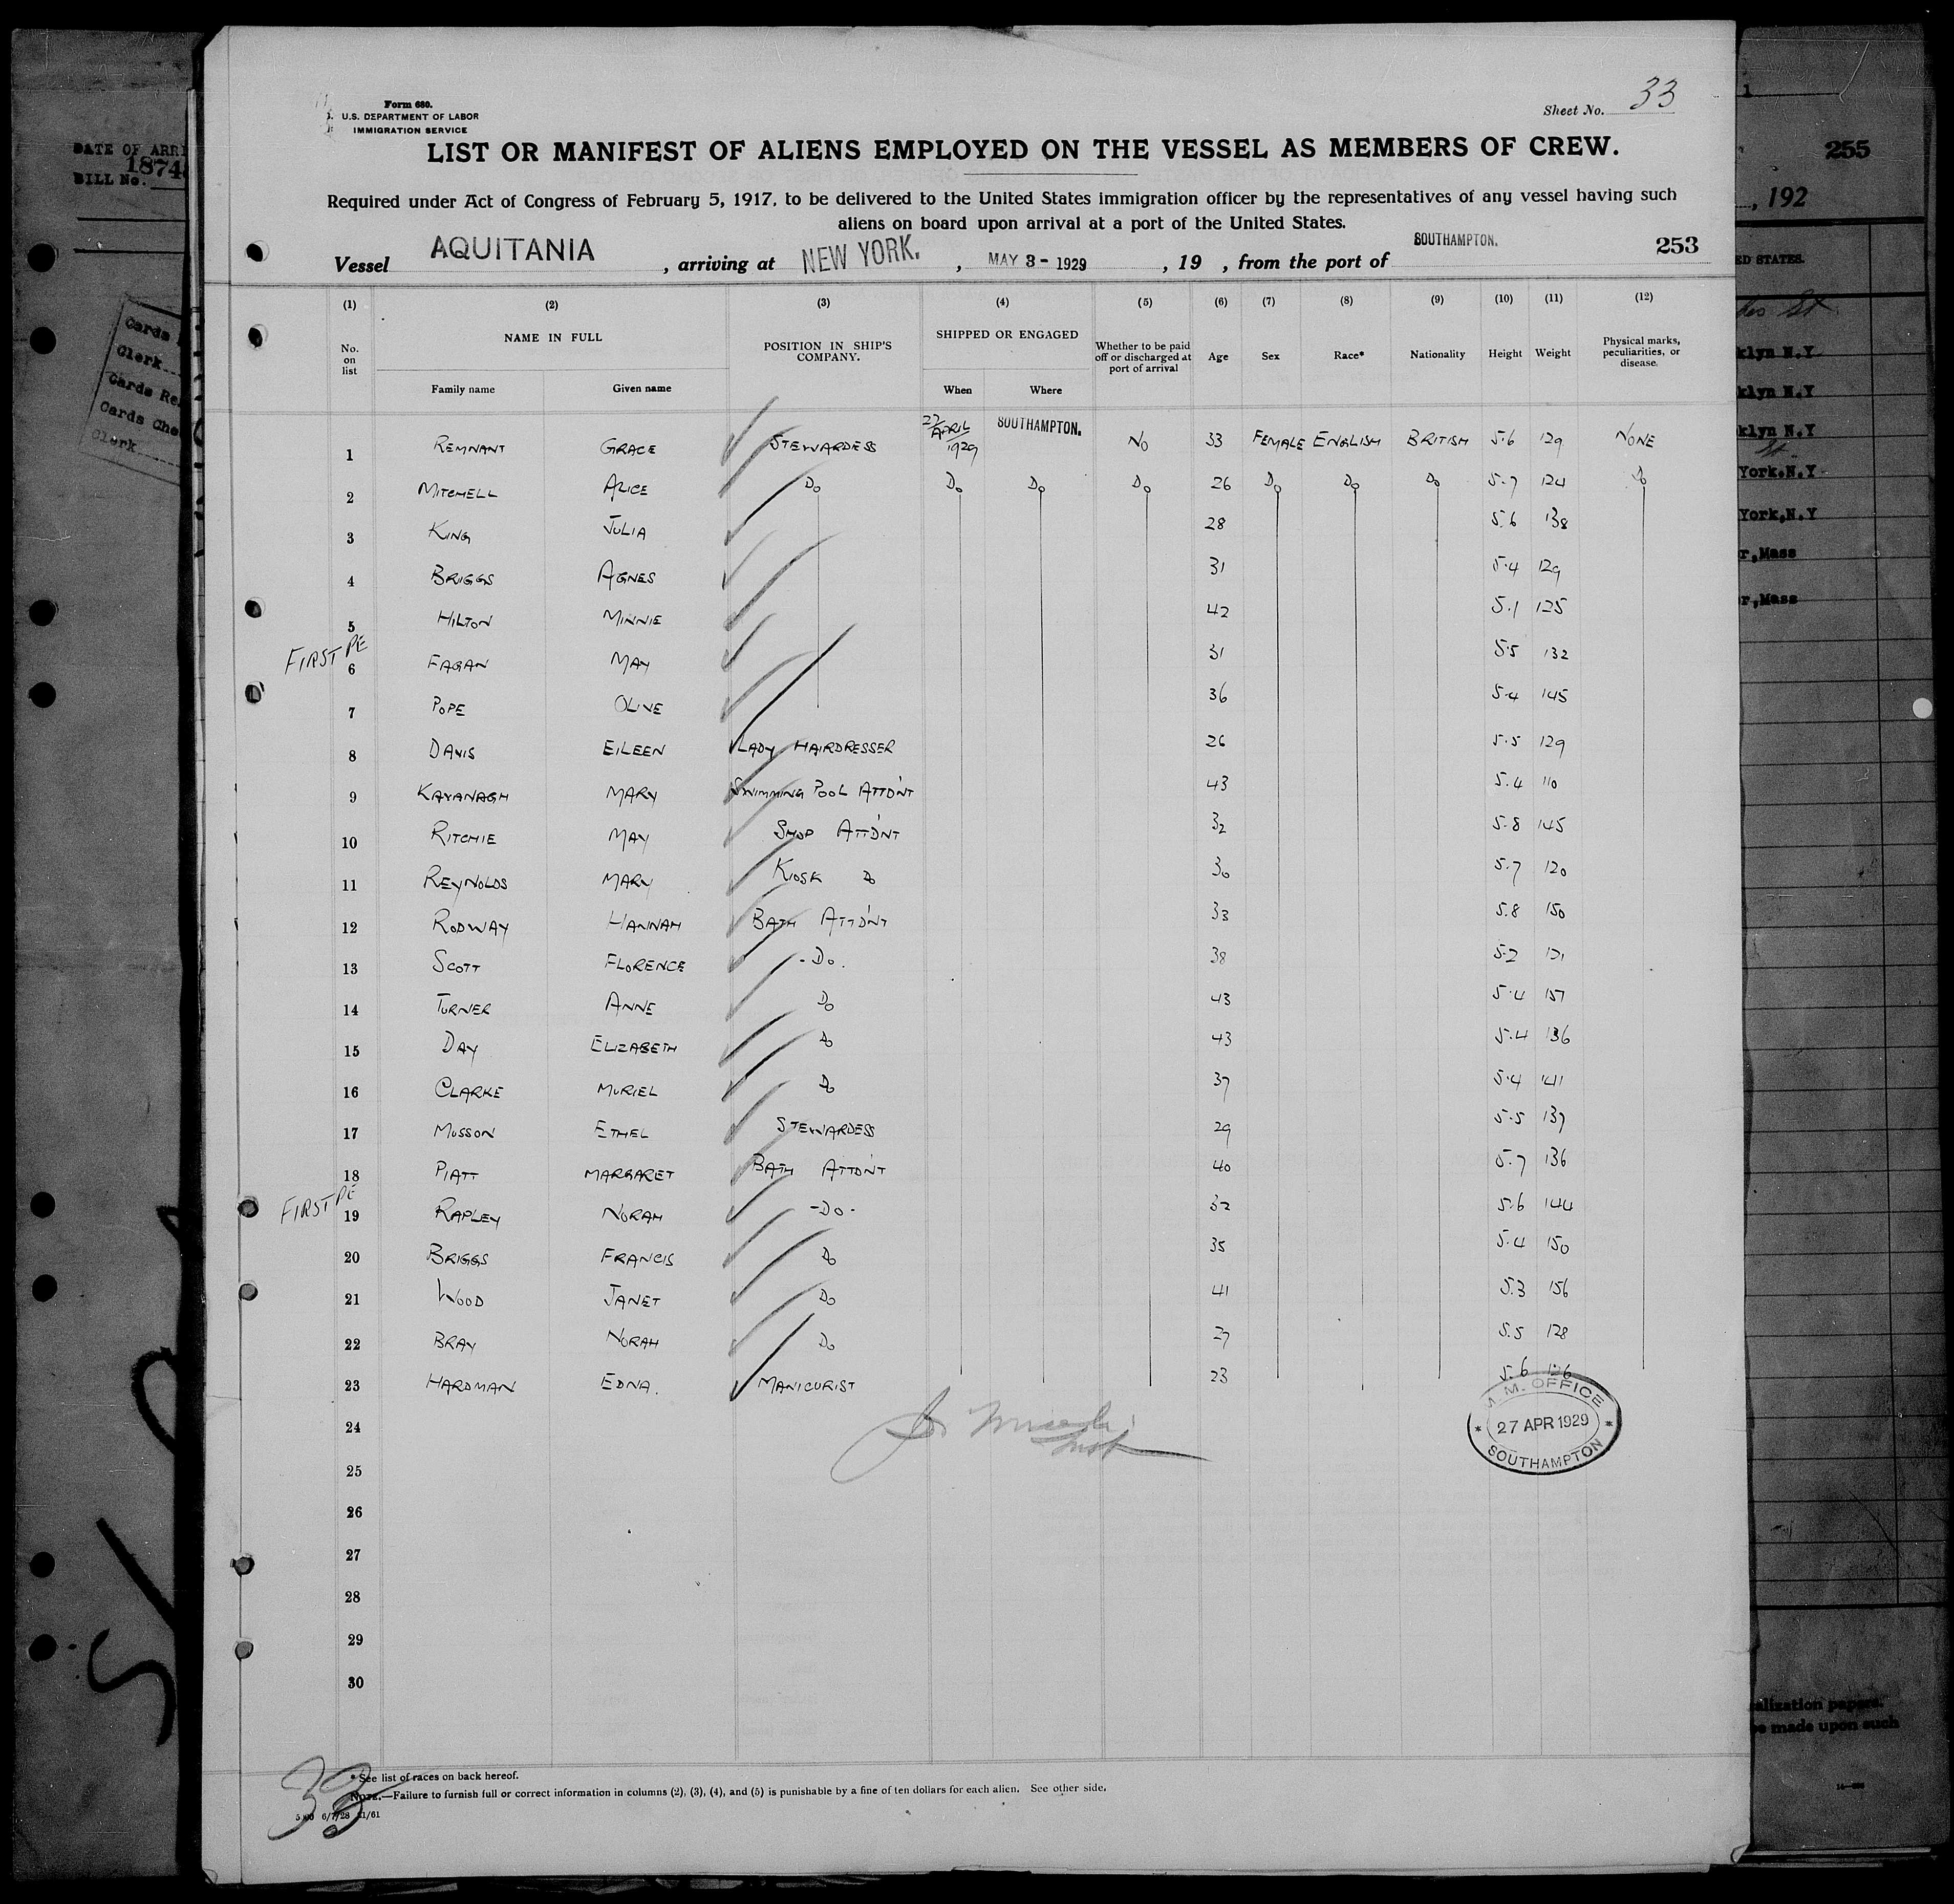 Form 680.
U.S. DEPARTMENT OF LABOR
IMMIGRATION SERVICE
Sheet No. 33
LIST OR MANIFEST OF ALIENS EMPLOYED ON THE VESSEL AS MEMBERS OF CREW.
Required under Act of Congress of February 5, 1917, to be delivered to the United States immigration officer by the representatives of any vessel having such
aliens on board upon arrival at a port of the United States.
Vessel AQUITANIA, arriving at NEW YORK., MAY 3 - 1929, 19 , from the port of SOUTHAMPTON. 253
(1) (2) (3) (4) (5) (6) (7) (8) (9) (10) (11) (12)
No. on list NAME IN FULL POSITION IN SHIP'S COMPANY. SHIPPED OR ENGAGED Whether to be paid off or discharged at port of arrival Age Sex Race* Nationality Height Weight Physical marks, peculiarities, or disease.
Family name Given name When Where
1 REMNANT GRACE STEWARDESS 27 APRIL 1929 SOUTHAMPTON. NO 33 FEMALE ENGLISH BRITISH 5.6 129 NONE
2 MITCHELL ALICE Do Do Do Do 26 Do Do Do 5.7 124 Do
3 KING JULIA 28 5.6 138
4 BRIGGS AGNES 31 5.4 129
5 HILTON MINNIE 42 5.1 125
FIRST PE
6 FAGAN MAY 31 5.5 132
7 POPE OLIVE 36 5.4 145
8 DAVIS EILEEN LADY HAIRDRESSER 26 5.5 129
9 KAVANAGH MARY SWIMMING POOL ATTD'NT 43 5.4 110
10 RITCHIE MAY SHOP ATTD'NT 32 5.8 145
11 REYNOLDS MARY KIOSK Do 30 5.7 120
12 RODWAY HANNAH BATH ATTD'NT 33 5.8 150
13 SCOTT FLORENCE - Do. 38 5.2 121
14 TURNER ANNE Do 43 5.4 157
15 DAY ELIZABETH Do 43 5.4 136
16 CLARKE MURIEL Do 37 5.4 141
17 MUSSON ETHEL STEWARDESS 29 5.5 137
18 PIATT MARGARET BATH ATTD'NT 40 5.7 136
FIRST PE
19 RAPLEY NORAH - Do - 32 5.6 144
20 BRIGGS FRANCIS Do 35 5.4 150
21 WOOD JANET Do 41 5.3 156
22 BRAY NORAH Do 27 5.5 128
23 HARDMAN EDNA. MANICURIST 23 5.6 126
24
M.M. OFFICE
* 27 APR 1929 *
SOUTHAMPTON
25
26
27
28
29
30
* See list of races on back hereof.
NOTE.—Failure to furnish full or correct information in columns (2), (3), (4), and (5) is punishable by a fine of ten dollars for each alien. See other side.
33
DATE OF ARRI
BILL No. 1874
Cards
Clerk
Cards Re
Cards Che
Clerk
255
, 192
ED STATES.
klyn N.Y
klyn N.Y
klyn N.Y
York, N.Y
York, N.Y
r, Mass
r, Mass
alization papers.
be made upon such